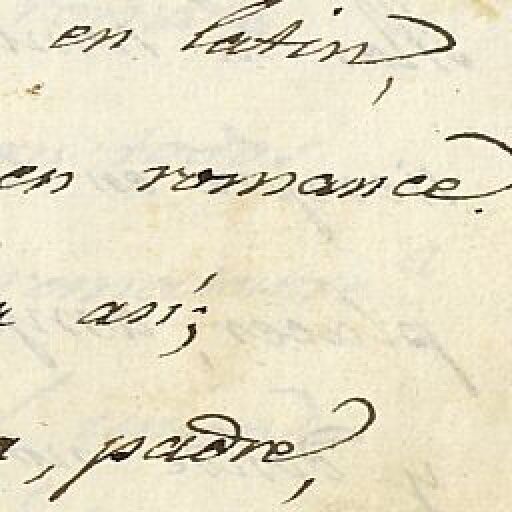 en latin,
en romance.
asi;
, padre,